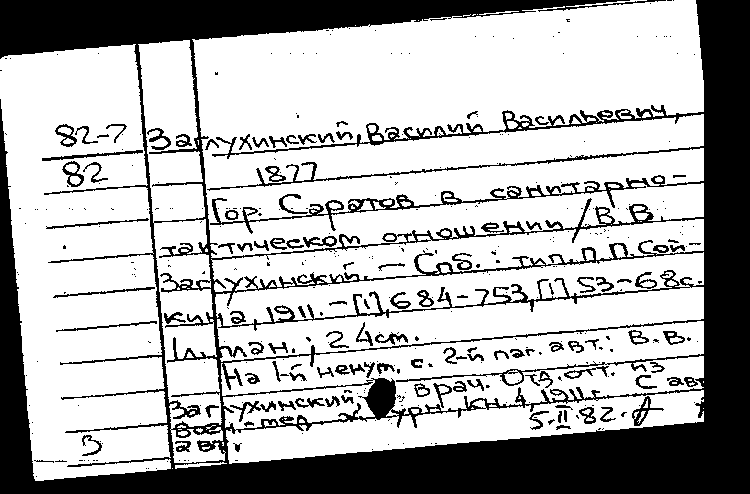 82-7 Заглухинский, Василий Васильевич,
82 1877
Гор. Саратов в санитарно-
тактическом отношении / В. В.
Заглухинский. – Спб. : тип. П. П. Сой-
кина, 1911. – [1], 684-753, [1], 53-68 с.
1 л. план. ; 24 см.
На 1-й ненум. с. 2-й паг. авт.: В. В.
Заглухинский, врач. Отд. отт. из
Воен.-мед. журн., кн. 4, 1911 г. С авт
авт.
5.II.82.
З